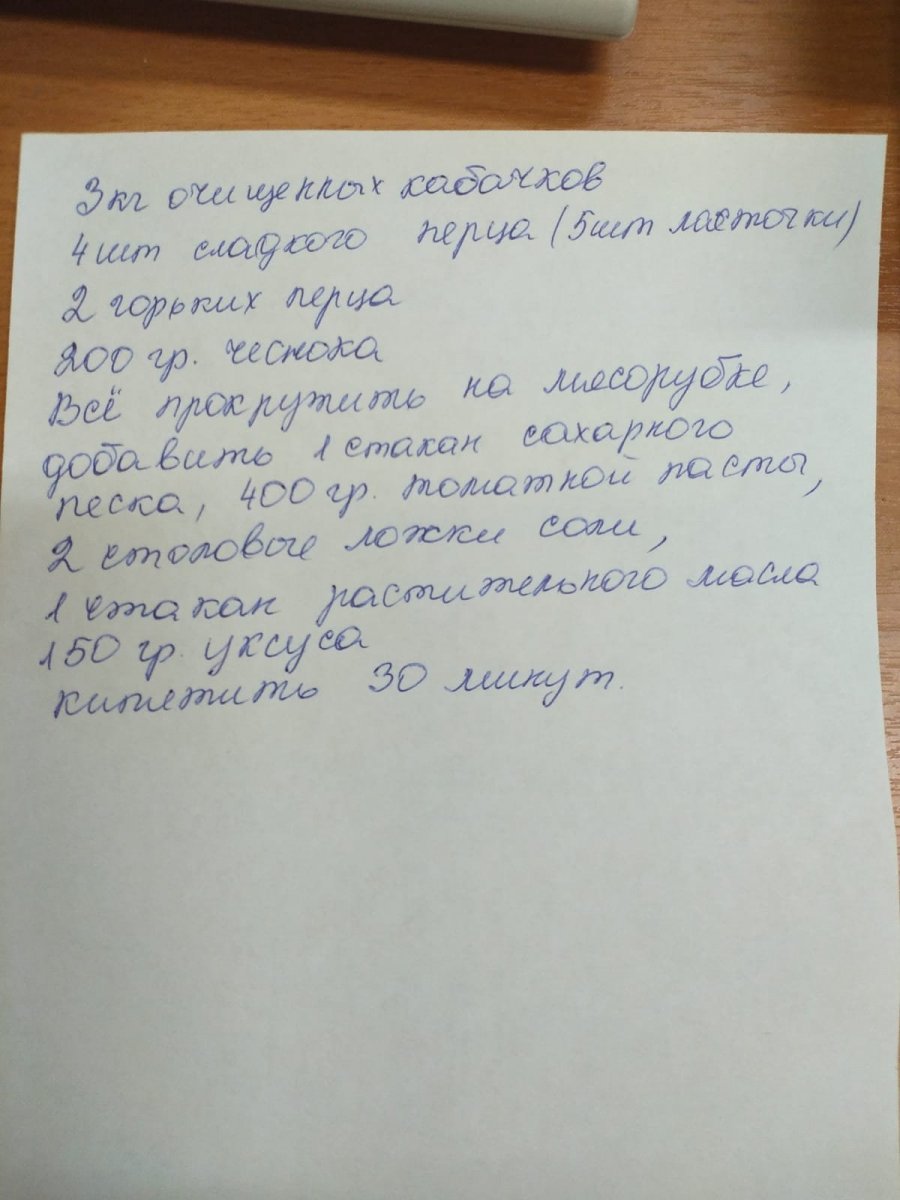 3кг очищенных кабачков
4шт сладкого перца (5шт ласточки)
2 горьких перца
200 гр. чеснока
Всё прокрутить на мясорубке,
добавить 1 стакан сахарного
песка, 400 гр. томатной пасты,
2 столовые ложки соли,
1 стакан растительного масла
150 гр. уксуса
кипятить 30 минут.